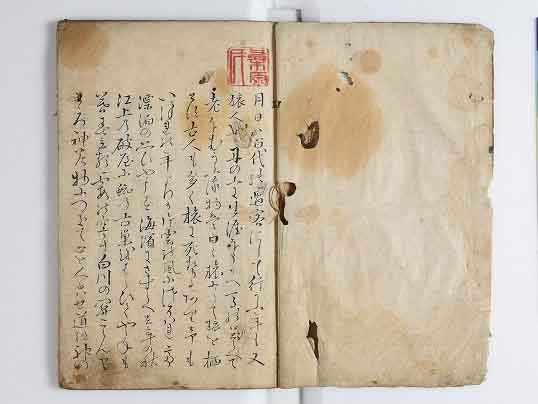 月日は百代の過客にして行かふ年も又
旅人也舟の上に生涯をうかへ馬の口とらへて
老をむかふる物は日々旅にして旅を栖
とす古人も多く旅に死せるあり予も
いつれの年よりか片雲の風に
漂泊の思ひやます海濱にさすらへ去年の秋
江上の破屋に蜘の古巣をはらひてやゝ年も
暮春立る霞の空に白川の関こえんと
そゝろ神の物につきて心をくるはせ道祖神の